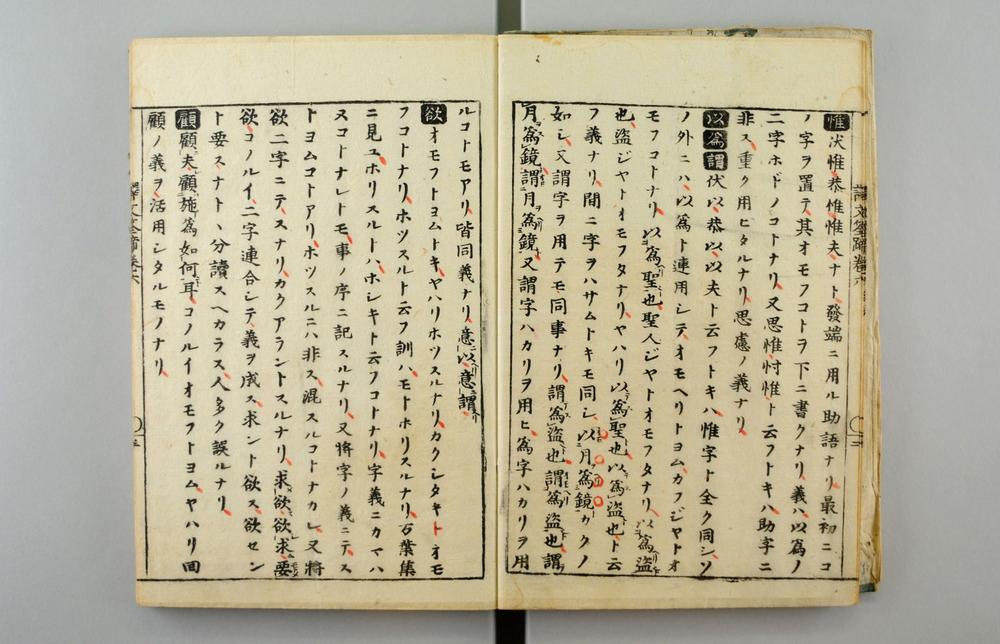 惟伏惟恭惟惟夫ナト發端ニ用ル助語ナリ最初ニコ
ノ字ヲ置テ其オモフコトヲ下ニ書クナリ義ハ以爲ノ
二字ホドノコトナリ又思惟忖惟ト云フトキハ助字ニ
非ス重ク用ヒタルナリ思慮ノ義ナリ
以爲謂伏以恭以以夫ト云フトキハ惟字ト全ク同シソ
ノ外ニハ以爲ト連用シテオモヘリトヨムカフジヤトオ
モフコトナリ以爲聖也聖人ジヤトオモフタナリ以爲盗
也盗ジヤトオモフタナリヤハリ以爲聖也以爲盗也ト云
フ義ナリ間ニ字ヲハサムトキモ同シ以月爲鏡カクノ
如シ又謂字ヲ用テモ同事ナリ謂爲盗也謂爲盗也謂
月爲鏡謂月爲鏡又謂字ハカリヲ用ヒ爲字ハカリヲ用
ルコトモアリ皆同義ナリ意以意謂
欲オモフトヨムトキヤハリホツスルナリカクシタキトオモ
フコトナリホツスルト云フ訓ハモトホリスルナリ万葉集
ニ見ユホリスルトハホシキト云フコトナリ字義ニカマハ
ヌコトナレトモ事ノ序ニ記スルナリ又將字ノ義ニテス
トヨムコトアリホツスルニハ非ス混スルコトナカレ又將
欲二字ニテスナリカクアラントスルナリ求欲欲求要
欲コノルイ二字連合シテ義ヲ成ス求ント欲ス欲セン
ト要スナト丶分讀スヘカラス人多ク誤ルナリ
顧顧夫顧施爲如何耳コノルイオモフトヨムヤハリ回
顧ノ義ヲ活用シタルモノナリ